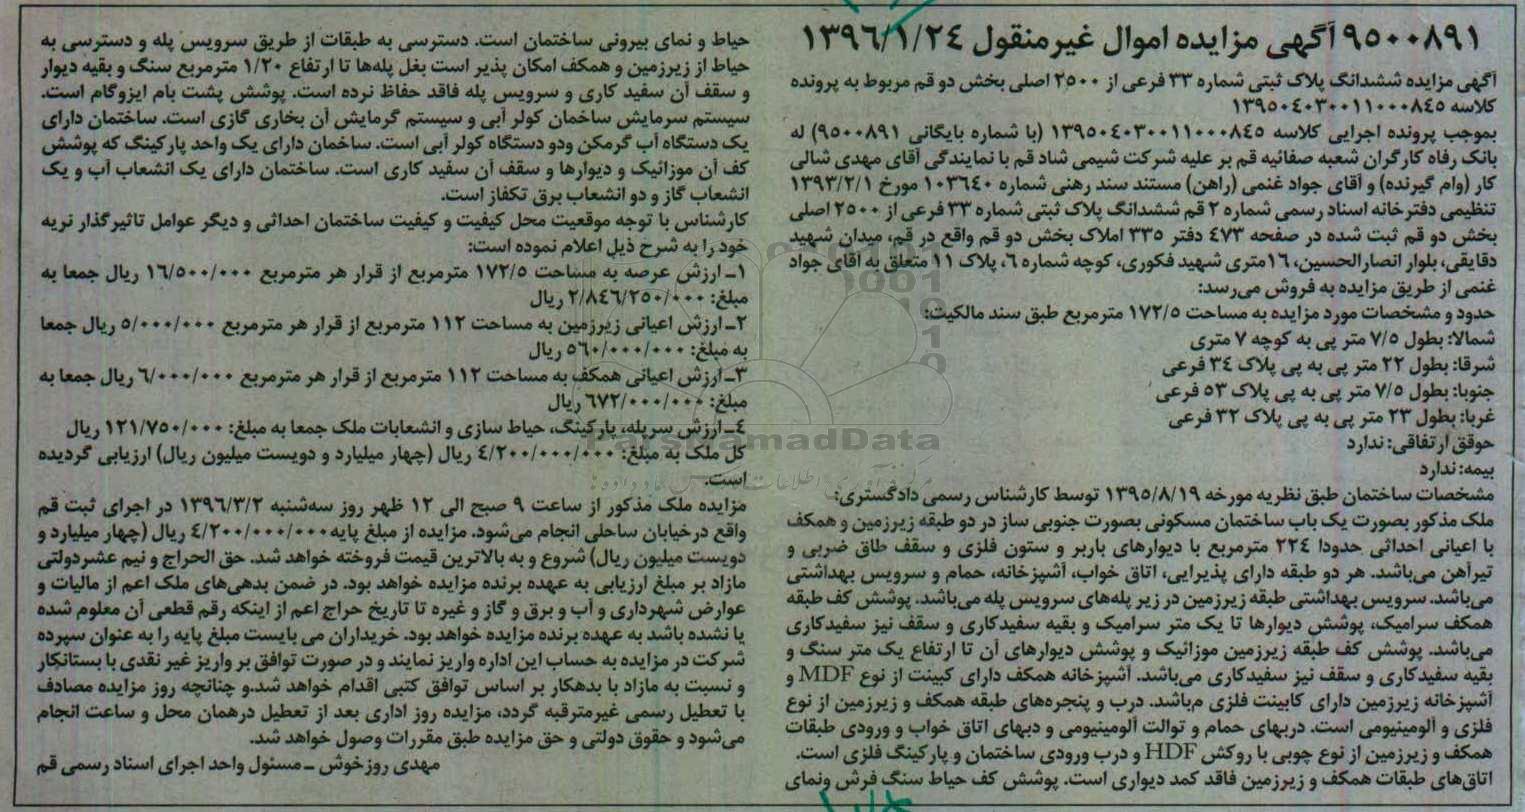 ۹۵۰۰۸۹۱ آگهی مزایده اموال غیرمنقول ۱۳۹۶/۱/۲۴
آگهی مزایده ششدانگ پلاک ثبتی شماره ۳۳ فرعی از ۲۵۰۰ اصلی بخش دو قم مربوط به پرونده
کلاسه ۱۳۹۵۰۴۰۳۰۰۱۱۰۰۰۸۴۵
بموجب پرونده اجرایی کلاسه ۱۳۹۵۰۴۰۳۰۰۱۱۰۰۰۸۴۵ (با شماره بایگانی ۹۵۰۰۸۹۱) له
بانک رفاه کارگران شعبه صفائیه قم بر علیه شرکت شیمی شاد قم با نمایندگی آقای مهدی شالی
کار (وام گیرنده) و آقای جواد غنمی (راهن) مستند سند رهنی شماره ۱۰۳۶۴۰ مورخ ۱۳۹۳/۲/۱
تنظیمی دفترخانه اسناد رسمی شماره ۲ قم ششدانگ پلاک ثبتی شماره ۳۳ فرعی از ۲۵۰۰ اصلی
بخش دو قم ثبت شده در صفحه ۴۷۳ دفتر ۳۳۵ املاک بخش دو قم واقع در قم، میدان شهید
دقایقی، بلوار انصارالحسین، ۱۶متری شهید فکوری، کوچه شماره ۶، پلاک ۱۱ متعلق به آقای جواد
غنمی از طریق مزایده به فروش می‌رسد:
حدود و مشخصات مورد مزایده به مساحت ۱۷۲/۵ مترمربع طبق سند مالکیت:
شمالا: بطول ۷/۵ متر پی به کوچه ۷ متری
شرقا: بطول ۲۲ متر پی به پی پلاک ۳۴ فرعی
جنوبا: بطول ۷/۵ متر پی به پی پلاک ۵۳ فرعی
غربا: بطول ۲۳ متر پی به پی پلاک ۳۲ فرعی
حوقق ارتفاقی: ندارد
بیمه: ندارد
مشخصات ساختمان طبق نظریه مورخه ۱۳۹۵/۸/۱۹ توسط کارشناس رسمی دادگستری:
ملک مذکور بصورت یک باب ساختمان مسکونی بصورت جنوبی ساز در دو طبقه زیرزمین و همکف
با اعیانی احداثی حدودا ۲۲۴ مترمربع با دیوارهای باربر و ستون فلزی و سقف طاق ضربی و
تیرآهن می‌باشد. هر دو طبقه دارای پذیرایی، اتاق خواب، آشپزخانه، حمام و سرویس بهداشتی
می‌باشد. سرویس بهداشتی طبقه زیرزمین در زیر پله‌های سرویس پله می‌باشد. پوشش کف طبقه
همکف سرامیک، پوشش دیوارها تا یک متر سرامیک و بقیه سفیدکاری و سقف نیز سفیدکاری
می‌باشد. پوشش کف طبقه زیرزمین موزائیک و پوشش دیوارهای آن تا ارتفاع یک متر سنگ و
بقیه سفیدکاری و سقف نیز سفیدکاری می‌باشد. آشپزخانه همکف دارای کبینت از نوع MDF و
آشپزخانه زیرزمین دارای کابینت فلزی مباشد. درب و پنجره‌های طبقه همکف و زیرزمین از نوع
فلزی و آلومینیومی است. دربهای حمام و توالت آلومینیومی و دبهای اتاق خواب و ورودی طبقات
همکف و زیرزمین از نوع چوبی با روکش HDF و درب ورودی ساختمان و پارکینگ فلزی است.
اتاق‌های طبقات همکف و زیرزمین فاقد کمد دیواری است. پوشش کف حیاط سنگ فرش ونمای
حیاط و نمای بیرونی ساختمان است. دسترسی به طبقات از طریق سرویس پله و دسترسی به
حیاط از زیرزمین و همکف امکان پذیر است بغل پله‌ها تا ارتفاع ۱/۲۰ مترمربع سنگ و بقیه دیوار
و سقف آن سفید کاری و سرویس پله فاقد حفاظ نرده است. پوشش پشت بام ایزوگام است.
سیستم سرمایش ساخمان کولر آبی و سیستم گرمایش آن بخاری گازی است. ساختمان دارای
یک دستگاه آب گرمکن ودو دستگاه کولر آبی است. ساخمان دارای یک واحد پارکینگ که پوشش
کف آن موزائیک و دیوارها و سقف آن سفید کاری است. ساختمان دارای یک انشعاب آب و یک
انشعاب گاز و دو انشعاب برق تکفاز است.
کارشناس با توجه موقعیت محل کیفیت و کیفیت ساختمان احداثی و دیگر عوامل تاثیرگذار نریه
خود را به شرح ذیل اعلام نموده است:
۱ـ ارزش عرصه به مساحت ۱۷۲/۵ مترمربع از قرار هر مترمربع ۱۶/۵۰۰/۰۰۰ ریال جمعا به
مبلغ: ۲/۸۴۶/۲۵۰/۰۰۰ ریال
۲ـ ارزش اعیانی زیرزمین به مساحت ۱۱۲ مترمربع از قرار هر مترمربع ۵/۰۰۰/۰۰۰ ریال جمعا
به مبلغ: ۵۶۰/۰۰۰/۰۰۰ ریال
۳ـ ارزش اعیانی همکف به مساحت ۱۱۲ مترمربع از قرار هر مترمربع ۶/۰۰۰/۰۰۰ ریال جمعا به
مبلغ: ۶۷۲/۰۰۰/۰۰۰ ریال
۴ـ ارزش سرپله، پارکینگ، حیاط سازی و انشعابات ملک جمعا به مبلغ: ۱۲۱/۷۵۰/۰۰۰ ریال
کل ملک به مبلغ: ۴/۲۰۰/۰۰۰/۰۰۰ ریال (چهار میلیارد و دویست میلیون ریال) ارزیابی گردیده
است.
مزایده ملک مذکور از ساعت ۹ صبح الی ۱۲ ظهر روز سه‌شنبه ۱۳۹۶/۳/۲ در اجرای ثبت قم
واقع درخیابان ساحلی انجام می‌شود. مزایده از مبلغ پایه ۴/۲۰۰/۰۰۰/۰۰۰ ریال (چهار میلیارد و
دویست میلیون ریال) شروع و به بالاترین قیمت فروخته خواهد شد. حق الحراج و نیم عشردولتی
مازاد بر مبلغ ارزیابی به عهده برنده مزایده خواهد بود. در ضمن بدهی‌های ملک اعم از مالیات و
عوارض شهرداری و آب و برق و گاز و غیره تا تاریخ حراج اعم از اینکه رقم قطعی آن معلوم شده
یا نشده باشد به عهده برنده مزایده خواهد بود. خریداران می بایست مبلغ پایه را به عنوان سپرده
شرکت در مزایده به حساب این اداره واریز نمایند و در صورت توافق بر واریز غیر نقدی با بستانکار
و نسبت به مازاد با بدهکار بر اساس توافق کتبی اقدام خواهد شد.و چنانچه روز مزایده مصادف
با تعطیل رسمی غیرمترقبه گردد، مزایده روز اداری بعد از تعطیل درهمان محل و ساعت انجام
می‌شود و حقوق دولتی و حق مزایده طبق مقررات وصول خواهد شد.
مهدی روزخوش ـ مسئول واحد اجرای اسناد رسمی قم
ParsNamadData